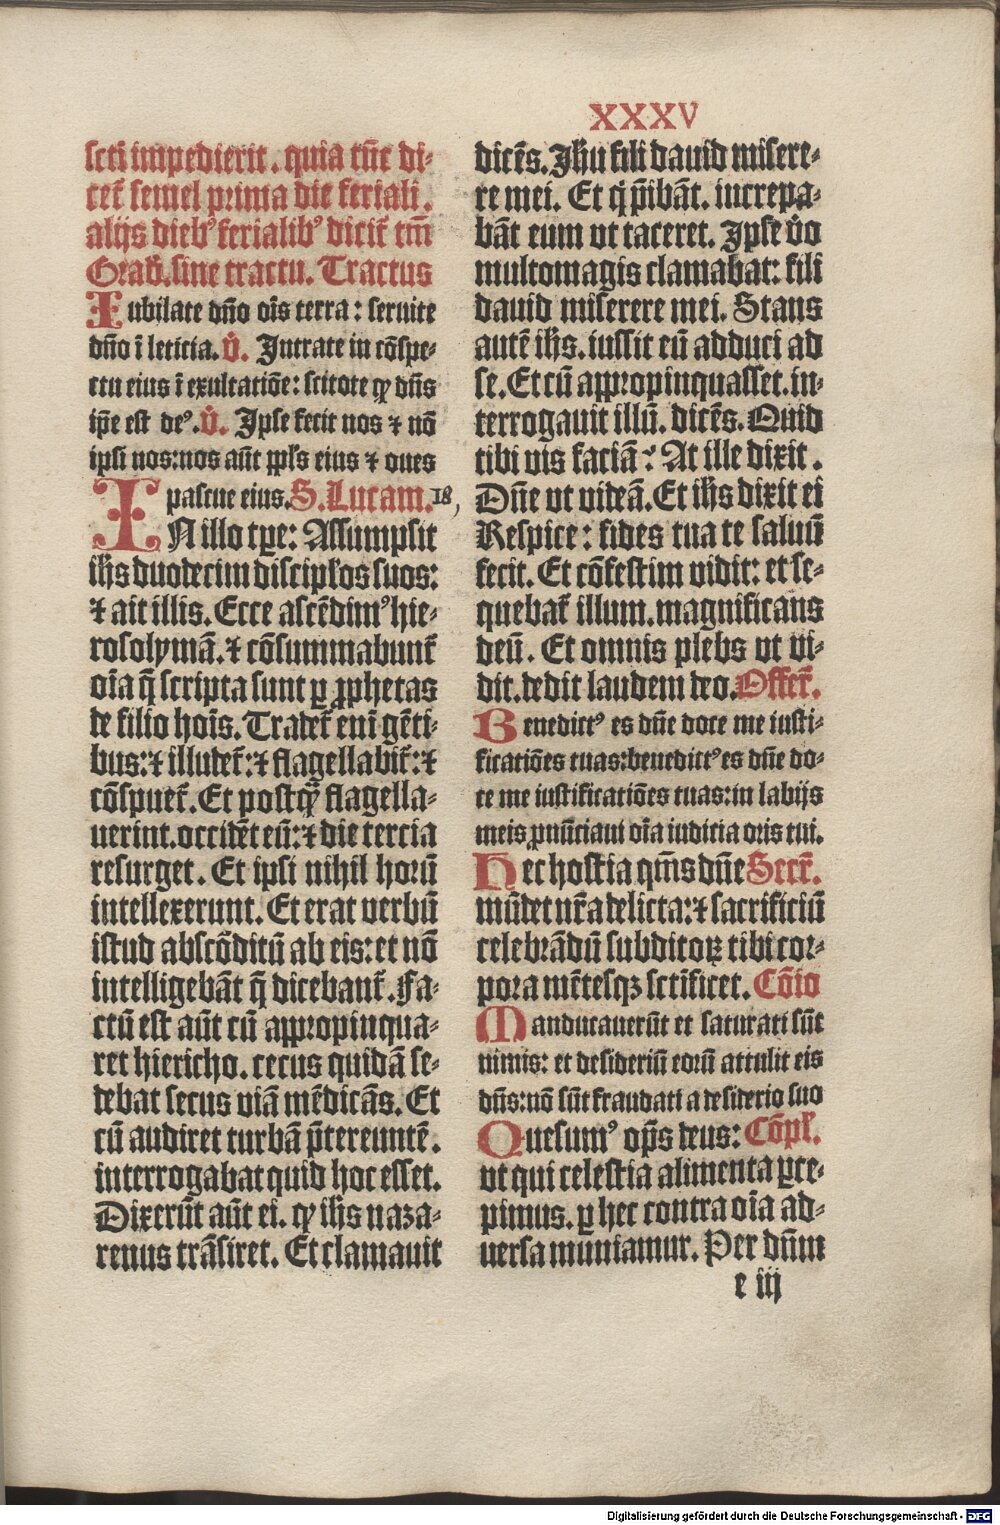 XXXV
scti impedierit. quia tūc di⸗
cet᷑ semel prima die feriali.
alijs diebꝰ ferialibꝰ dicit᷑ tm̄
Grad̄. sine tractu. Tractus
Iubilate dn̄o oīs terra: seruite
dn̄o ī leticia. v̄. Intrate in cōspe⸗
ctu eius ī exultatiōe: scitote ꝙ dn̄s
ip̄e est deꝰ. v̄. Ipse fecit nos ⁊ nō
ipsi nos: nos aūt ppl̄s eius ⁊ oues
pascue eius. S. Lucam. 18,
IN illo tꝑe: Assumpsit
ih̄s duodecim discipl̄os suos:
⁊ ait illis. Ecce ascēdimꝰ hie⸗
rosolymā. ⁊ cōsummabunt᷑
oīa q̄ scripta sunt ꝑ ꝓphetas
de filio hoīs. Tradet᷑ enī gēti⸗
bus: ⁊ illudet᷑: ⁊ flagellabit᷑: ⁊
cōspuet᷑. Et postq̄ flagella⸗
uerint. occidēt eū: ⁊ die tercia
resurget. Et ipsi nihil horū
intellexerunt. Et erat verbū
istud abscōditū ab eis: et nō
intelligebāt q̄ dicebant᷑. Fa⸗
ctū est aūt cū appropinqua⸗
ret hiericho. cecus quidā se⸗
debat secus viā mēdicās. Et
cū audiret turbā p̄tereuntē.
interrogabat quid hoc esset.
Dixerūt aūt ei. ꝙ ih̄s naza⸗
renus trāsiret. Et clamauit
dicēs. Jhu fili dauid misere⸗
re mei. Et q̇ p̄ibāt. increpa⸗
bāt eum vt taceret. Ipse v̇o
multomagis clamabat: fili
dauid miserere mei. Stans
autē ih̄s. iussit eū adduci ad
se. Et cū appropinquasset. in⸗
terrogauit illū. dicēs. Quid
tibi vis faciā? At ille dixit.
Dn̄e vt videā. Et ih̄s dixit ei
Respice: fides tua te saluū
fecit. Et cōfestim vidit: et se⸗
quebat᷑ illum. magnificans
deū. Et omnis plebs vt vi⸗
dit. dedit laudem deo. Offer̄.
Benedictꝰ es dn̄e doce me iusti⸗
ficatiōes tuas: benedictꝰ es dn̄e do⸗
ce me iustificatiōes tuas: in labijs
meis ꝓnūciaui oīa iudicia oris tui.
Hec hostia qm̄s dn̄e Secr̄.
mūdet nr̄a delicta: ⁊ sacrificiū
celebrādū subditoꝝ tibi cor⸗
pora mētesqꝫ sct̄ificet. Cōio
Manducauerūt et saturati sūt
nimis: et desideriū eorū attulit eis
dn̄s: nō sūt fraudati a desiderio suo
Quesumꝰ op̄s deus: Cōpl̄.
vt qui celestia alimenta ꝑce⸗
pimus. ꝑ hec contra oīa ad⸗
uersa muniamur. Per dn̄m
e iij
Digitalisierung gefördert durch die Deutsche Forschungsgemeinschaft - DFG